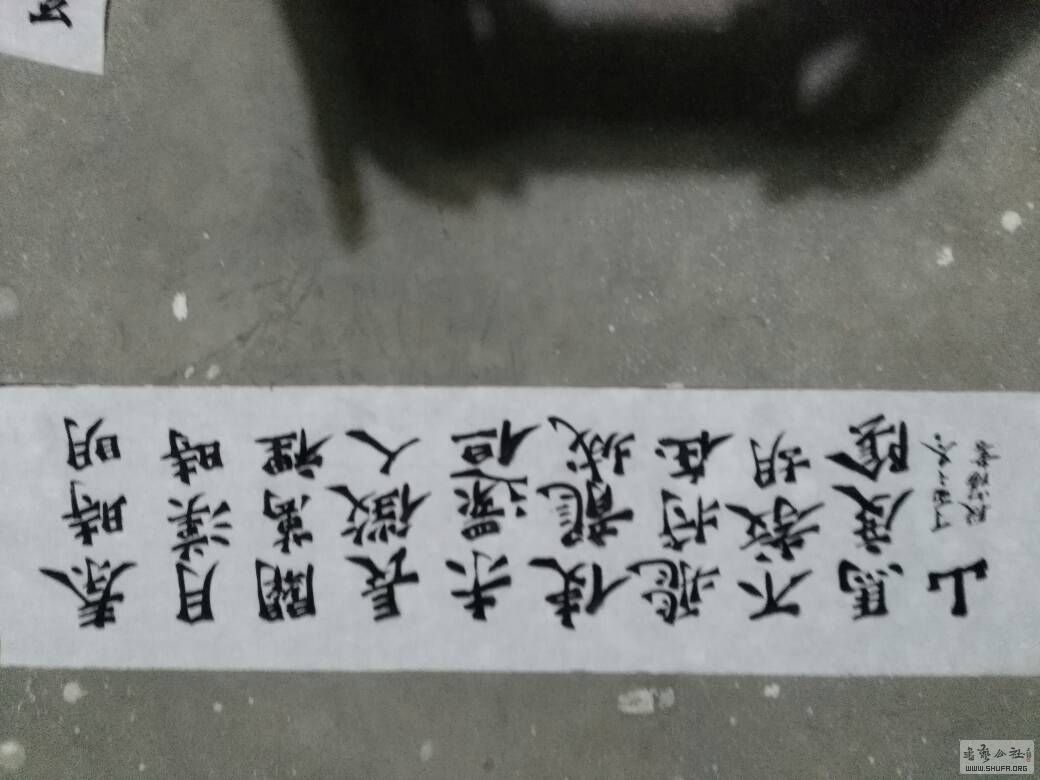 秦時明
月漢時
關萬裡
長徵人
未還但
使龍城
飛將在
不教胡
馬度陰
山
丁酉
書
WWW.SHUFA.ORG